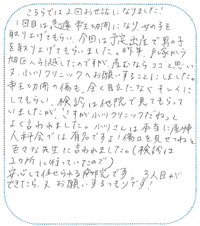 こちらでは2回お世話になりました!
1回目は 帝王切開になり、女の子を
取り上げてもらい、今回は予定出産で男の子
を取り上げてもらいました。昨年 から
旭区へ引越したのですが、産むならココと思い
又、小川クリニックへお願いすることにしました。
帝王切開の傷も、全く目立たなくキレイに
してもらい、検診は他院で見てもらって
いましたが、「さすが小川クリニックだね」って
よく言われました。小川さんは本当に産婦
人科会では有名ですよ!傷口を見せてねと
色々な先生に言われました。(検診は
2ヶ所に行っていたので)
安心して任せられる病院です。3人目が
できたら、又お願いするつもりです!